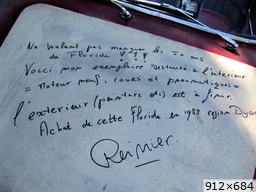 Ne voulant pas manquer les 20 ans
de Floride !!!
Voici mon exemplaire restauré à l'intérieur
= Moteur neuf, roues et pneumatiques =
l'extérieur (peinture etc) est à finir.
Achat de cette Floride en 1988 région
Reinier.
912×684